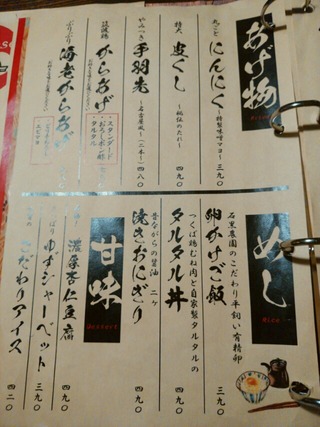 あげ物
丸ごと
にんにく
～特製味噌マヨ～
三九〇
特大
串くし
～秘伝のたれ～
四九〇
やみつき
手羽先
～名古屋風～(二本～)
四八〇
筑波鶏
からあげ
スタンダード
おろしポン酢
タルタル
ぷりぷり
海老からあげ
めし
Rice
石黒農園のこだわり平飼い有精卵
卵かけご飯
三九〇
つくば鶏むね肉と自家製タルタルの
タルタル丼
四九〇
昔ながらの醤油 二ヶ
焼きおにぎり
四九〇
甘味
Dessert
濃厚杏仁豆腐
四九〇
ゆずシャーベット
三九〇
こだわりアイス
四二〇